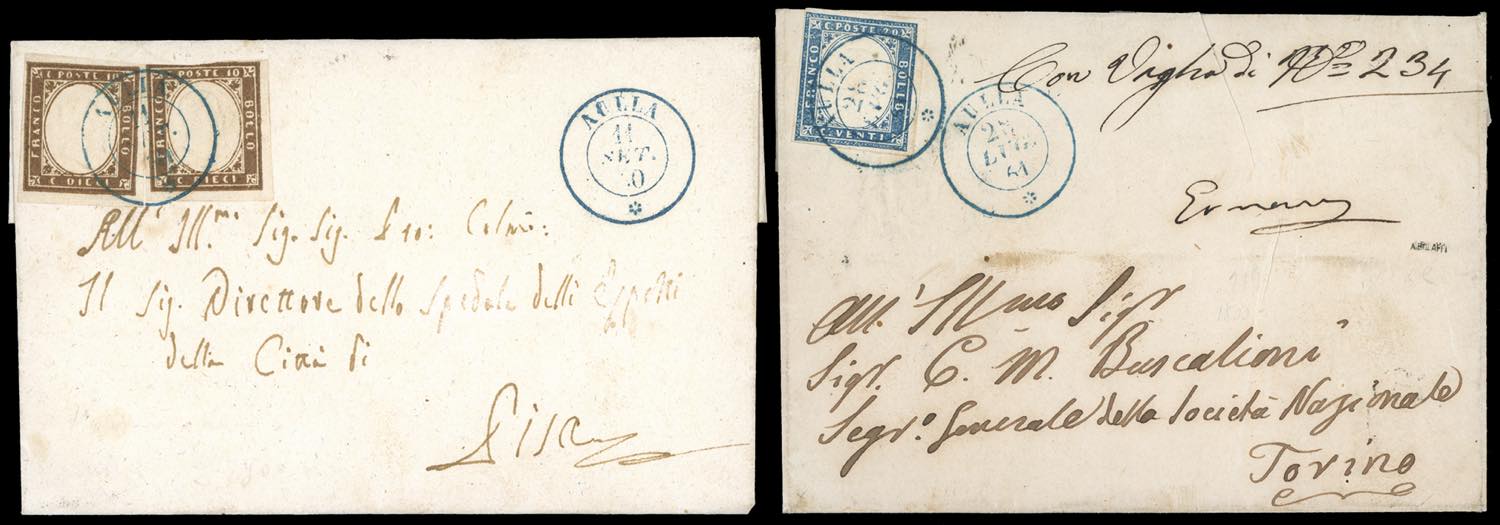 C. POSTE 10
FRANCO
BOLLO
C. DIECI
POSTE 10
FRANCO
BOLLO
DIECI
AULLA
AULLA
11
SET.
All' Ill.mo Sig. Sig.
Il Sig. Direttore dello Spedale delli Esposti
della Città di
Pisa
C. POSTE 20
FRANCO
BOLLO
C. VENTI
AULLA
28
AULLA
28
LUG.
61
Con Vaglia di N.o 234
All' Ill.mo Sigr
Sigr. C. M. Buscalioni
Segr.o Generale della Società Nazionale
Torino